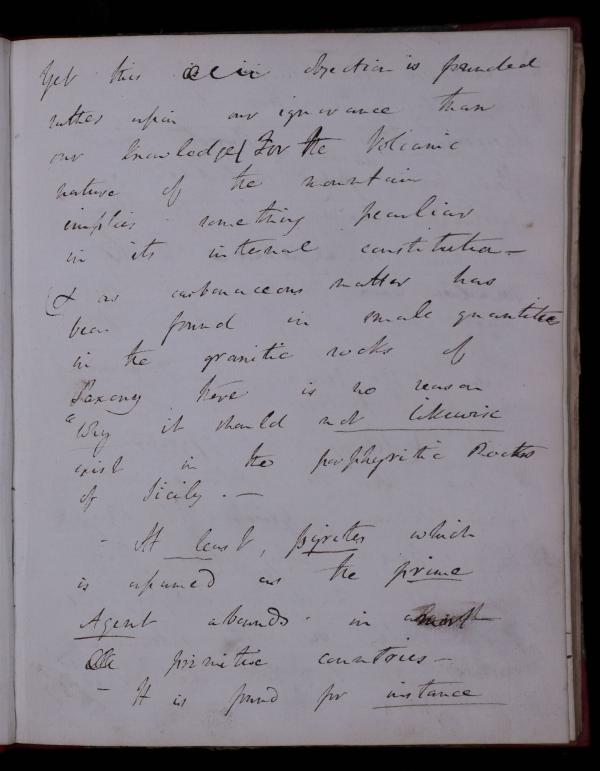 Yet this objection is founded
rather upon our ignorance than
our knowledge / For the Volcanic
nature of the mountain
implies something peculiar
in its internal constitution –
(& as carbonaceous matter has
been found in small quantities
in the granitic rocks of
Saxony there is no reason
Why it should not likewise
exist in the porphyritic Rocks
of Sicily. –
– At least, pyrites which
is assumed as the prime
Agent abounds in
primitive countries –
– It is found for instance